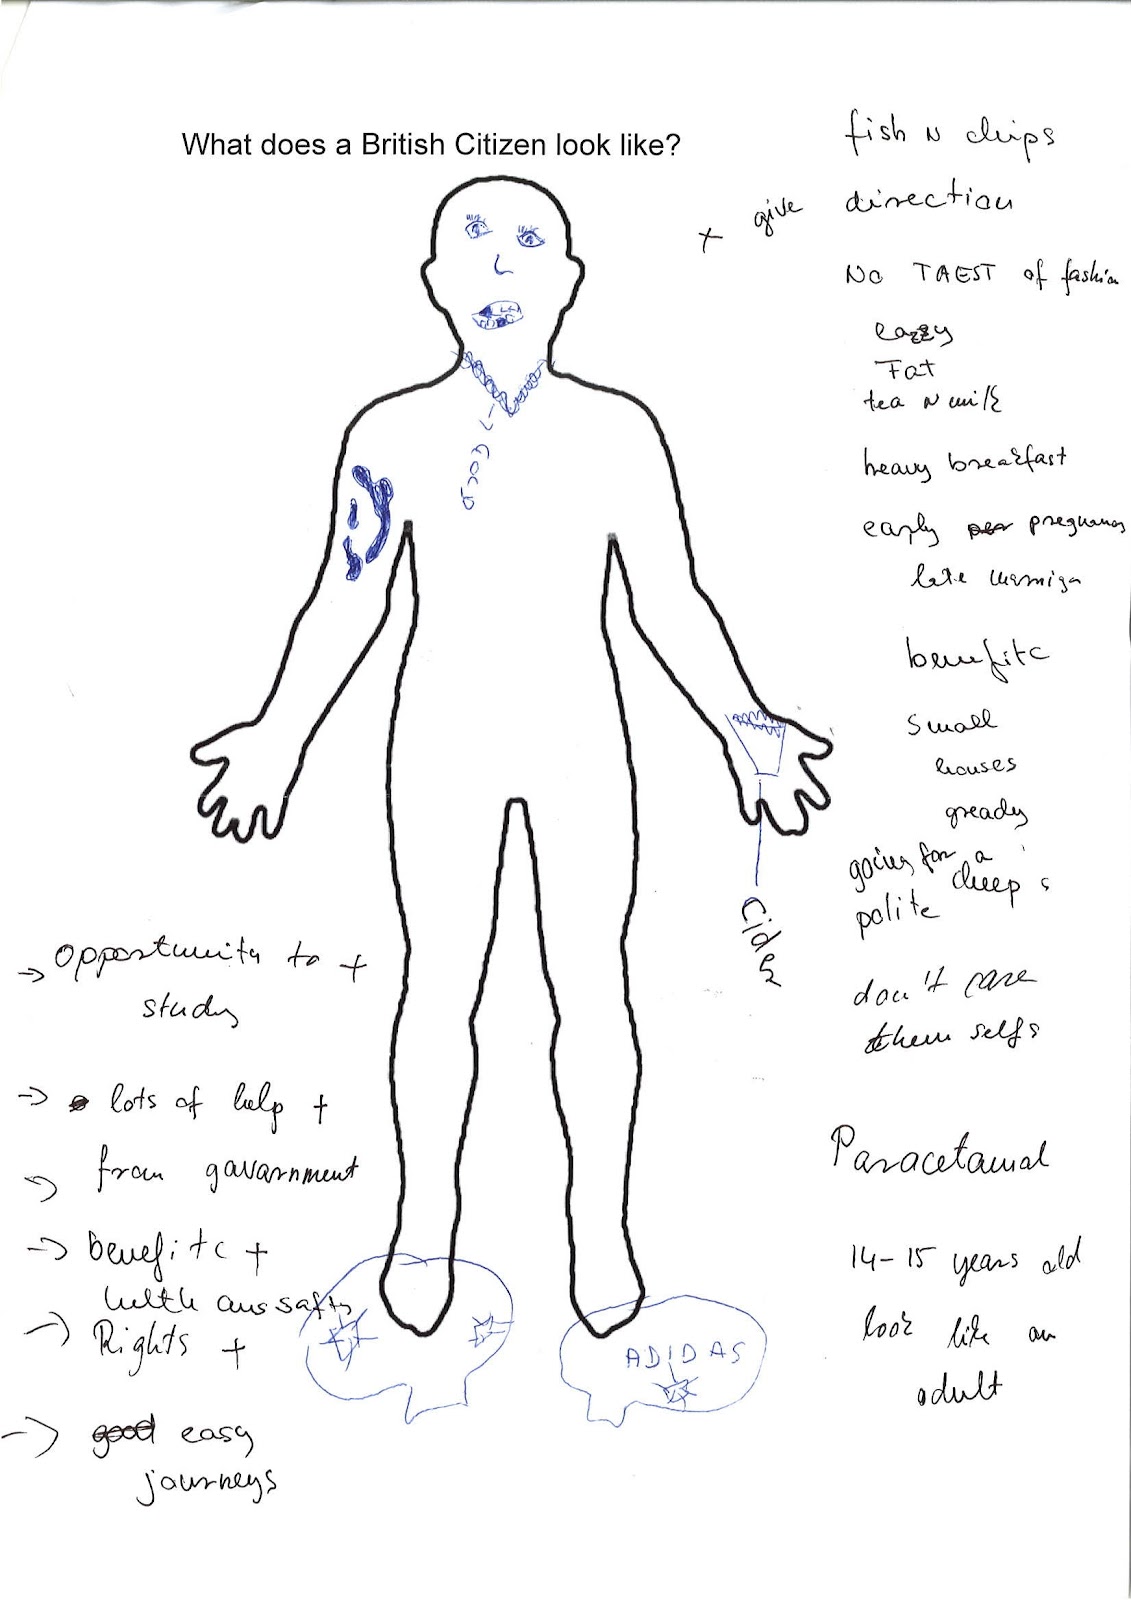 What does a British Citizen look like?
fish N chips
+ give direction
No TAEST of fashion
eazzy
Fat
tea N milk
heavy breakfast
early pregnancy
late
benefitc
Small
houses
gready
going for a
cheep's
polite
don't care
them selfs
Paracetamal
14-15 years old
look like an
adult
GOLD
Cider
ADIDAS
→ Opportunity to +
study
→ lots of help +
→ from gavarnment
→ benefitc +
helth
→ Rights +
→ good easy
journeys